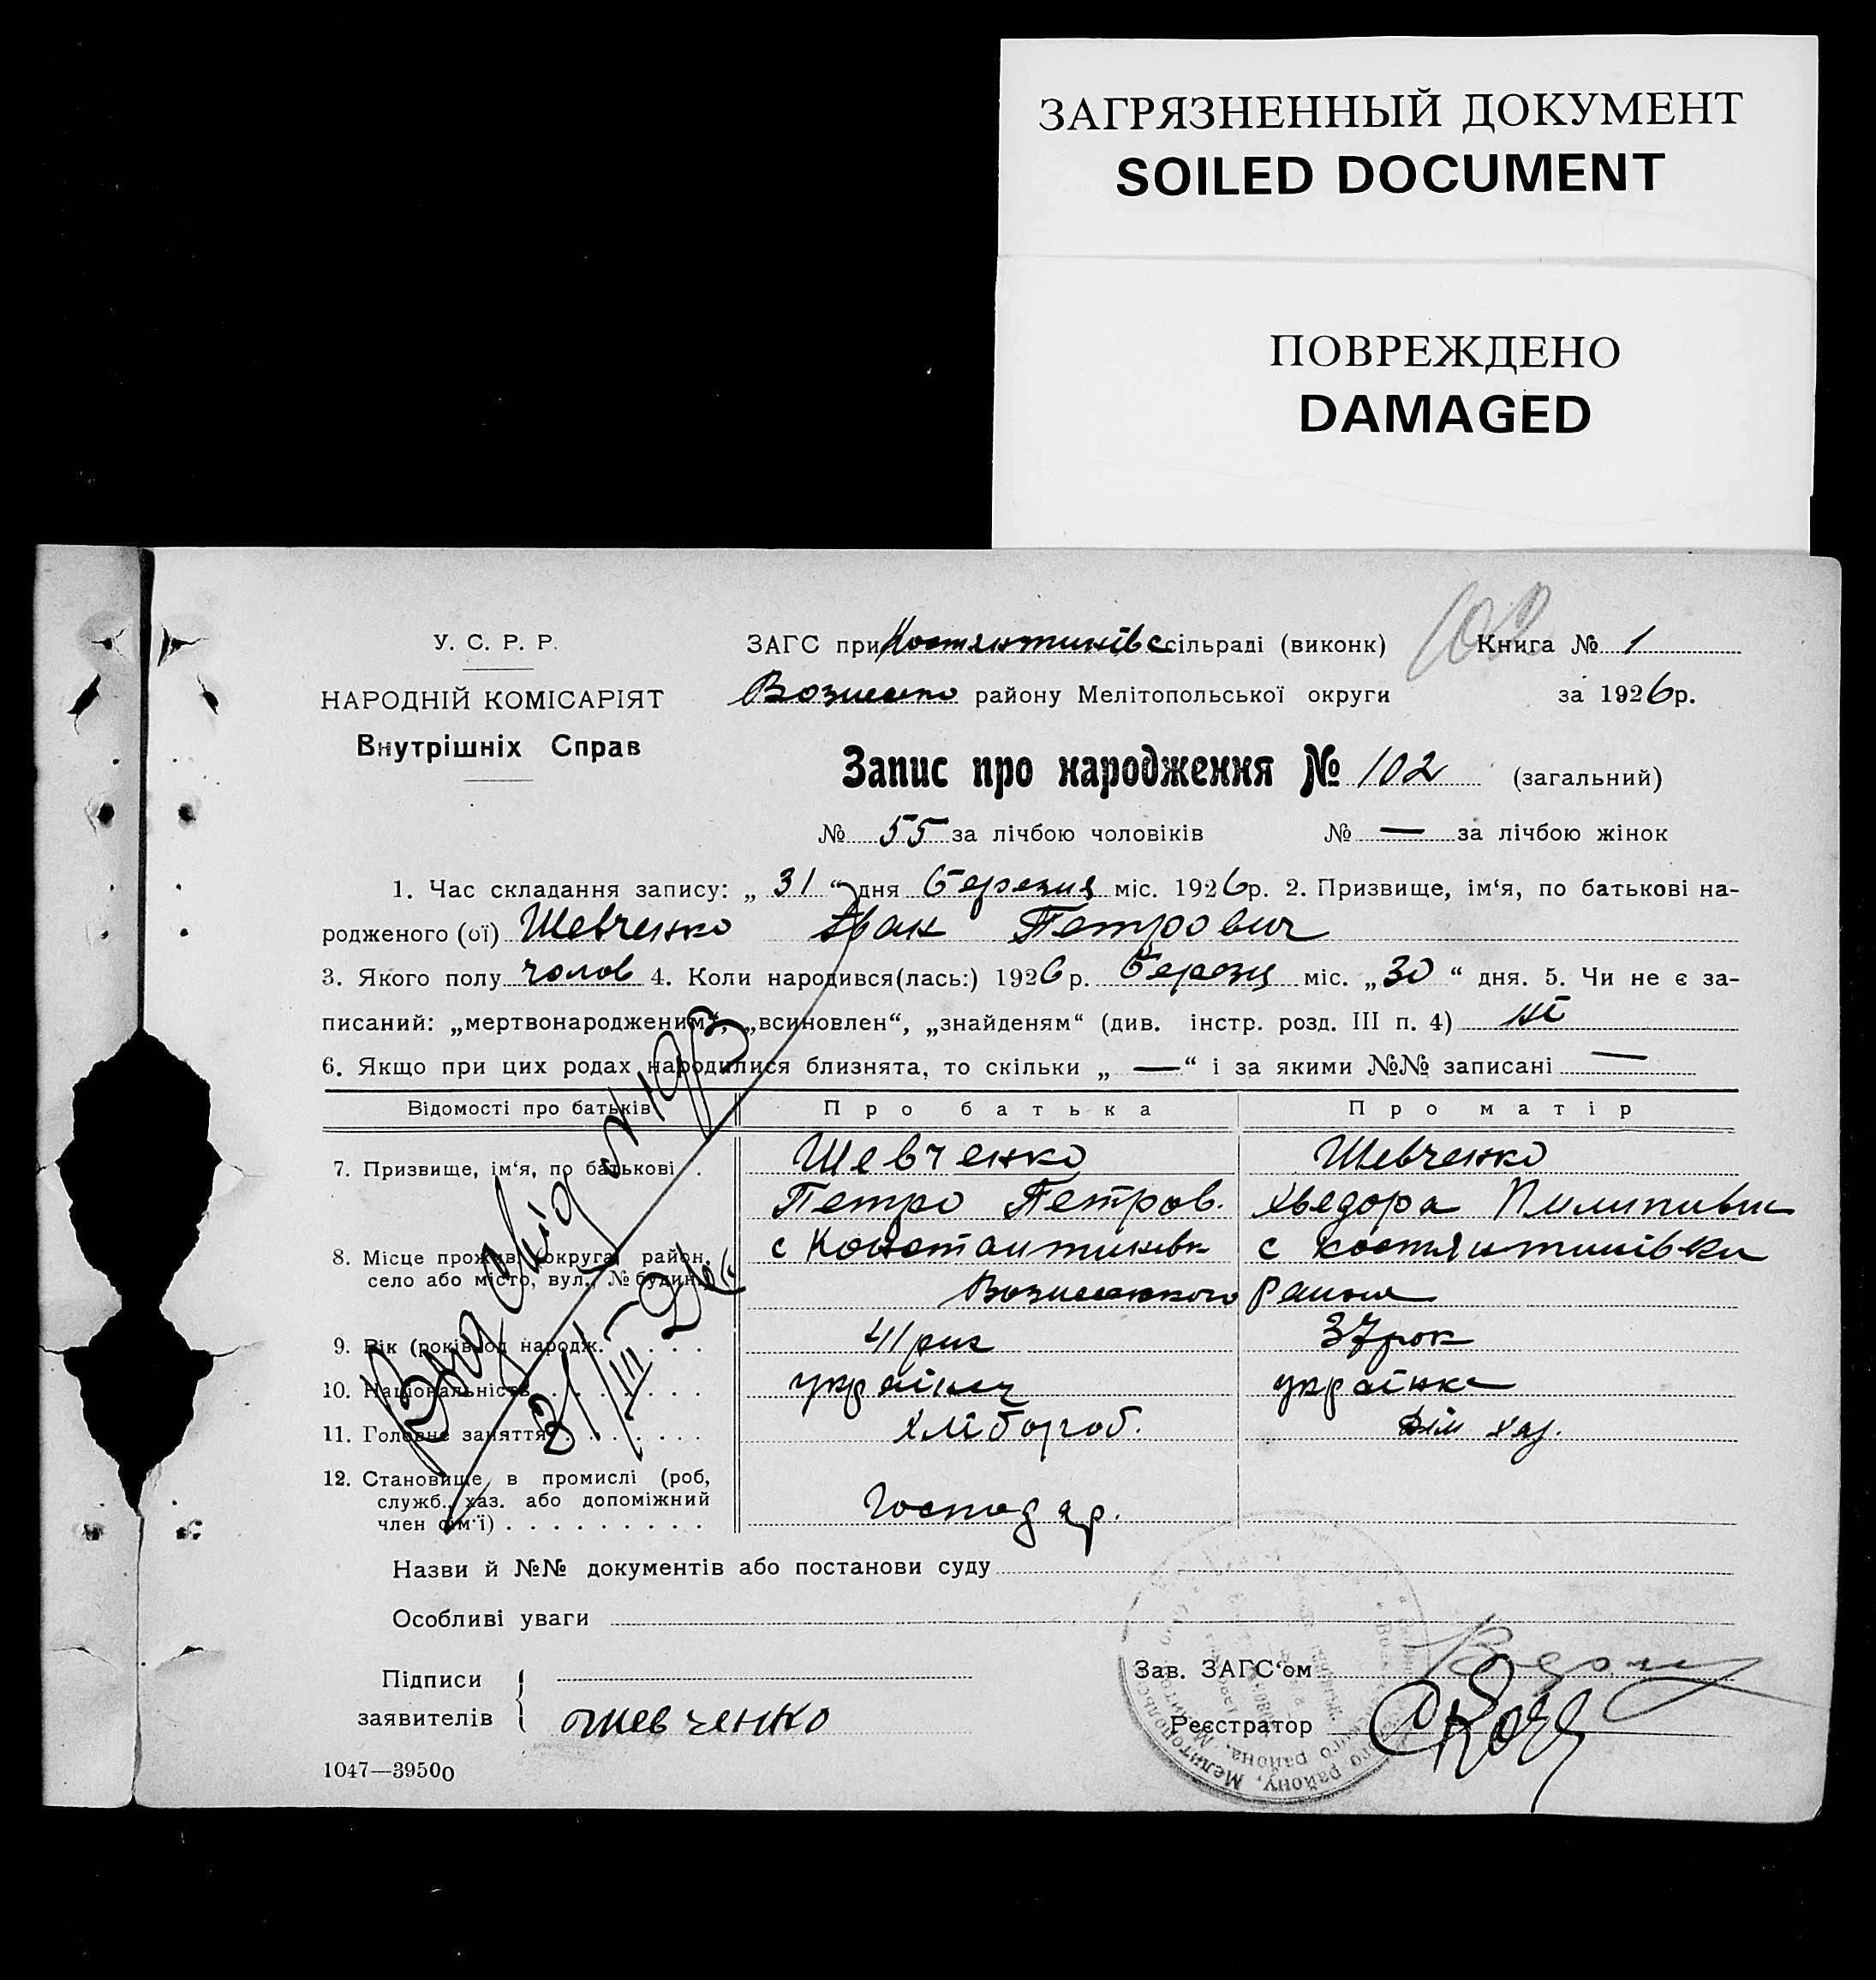 ЗАГРЯЗНЕННЫЙ ДОКУМЕНТ
SOILED DOCUMENT
ПОВРЕЖДЕНО
DAMAGED
102
У. С. Р. Р.
НАРОДНІЙ КОМІСАРІЯТ
Внутрішніх Справ
ЗАГС при Костянтинівс сільраді (виконк) Книга № 1
району Мелітопольської округи за 1926 р.
Запис про народження № 102 (загальний)
№ 55 за лічбою чоловіків № — за лічбою жінок
1. Час складання запису: „ 31 “ дня березня міс. 1926 р. 2. Призвище, ім‘я, по батькові на-
родженого (ої) Шевченко Іван Петрович
3. Якого полу чолов 4. Коли народився(лась:) 1926 р. березц міс. „ 30 “ дня. 5. Чи не є за-
писаний: „мертвонародженим“, „всиновлен“, „знайденям“ (див. інстр. розд. III п. 4) ні
6. Якщо при цих родах народилися близнята, то скільки „ — “ і за якими №№ записані —
Відомості про батьків Про батька Про матір
7. Призвище, ім‘я, по батькові . Шевченко Шевченко
Петро Петров. Хведора Пилипивн
8. Місце прожив. (округа, район, с Константинівк с Костянтинівки
село або місто, вул., № будин.)
Вознесенкого района
9. Вік (років од народж. . . . . 41 рик 37 рок
10. Національність . . . . . . українец українка
11. Головне заняття . . . . . . хлібороб. дім хаз.
12. Становище в промислі (роб,
служб., хаз. або допоміжний
член сім‘ї) . . . . . . . . . Господар.
31/III–26
Назви й №№ документів або постанови суду
Особливі уваги
Підписи
заявителів
Шевченко
Зав. ЗАГС‘ом
Реєстратор
1047—39500